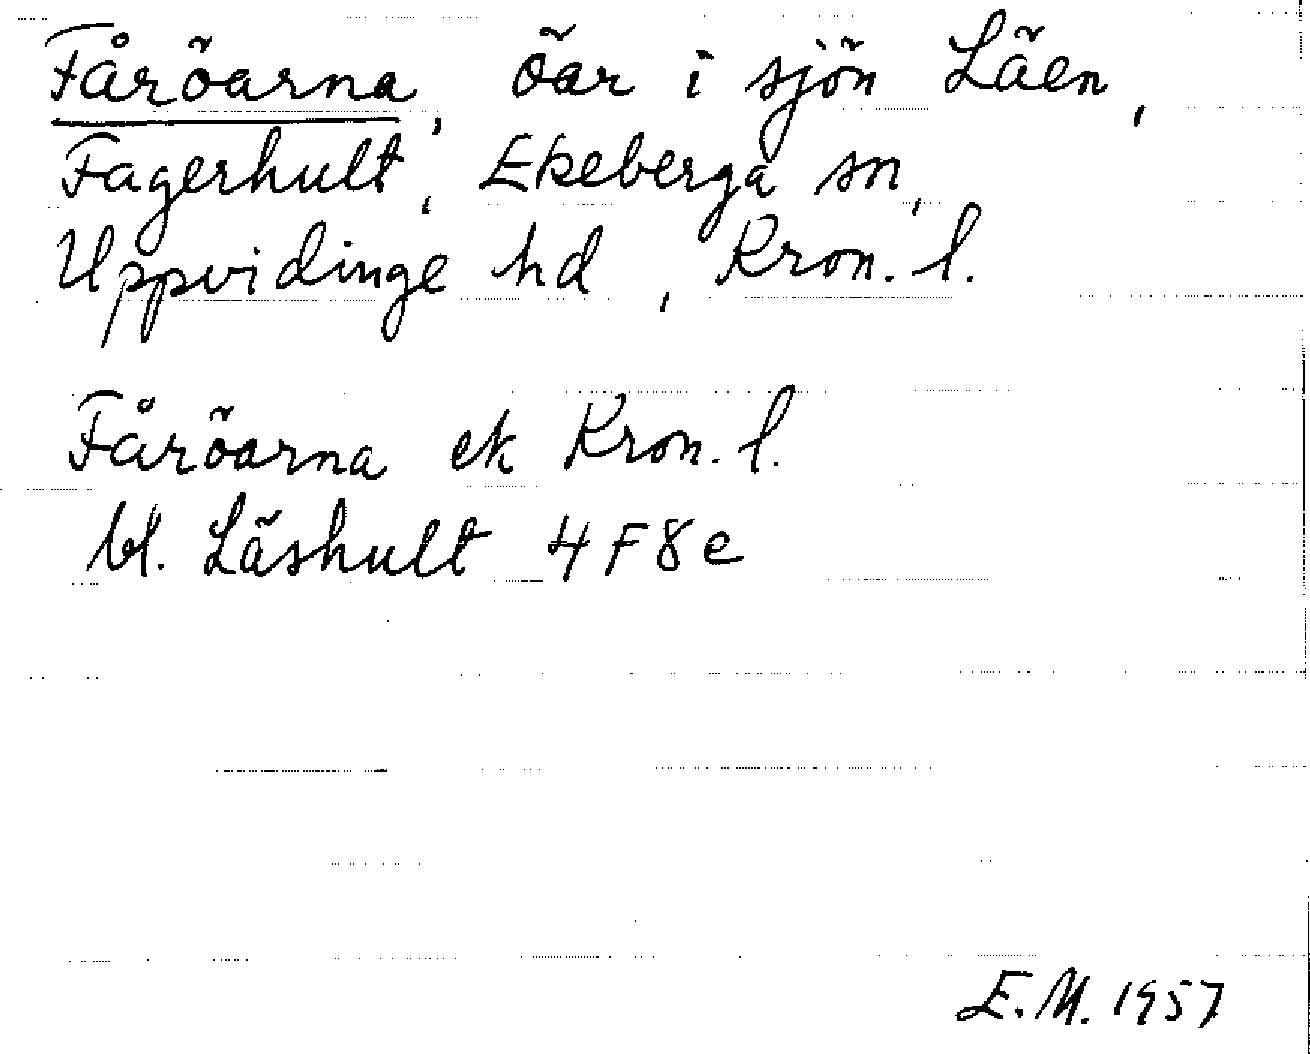 Fåröarna, öar i sjön Läen,
Fagerhult, Ekeberga sn,
Uppvidinge hd, Kron. l.
Fåröarna ek Kron. l.
bl. Läshult 4F8e
E.M. 1957